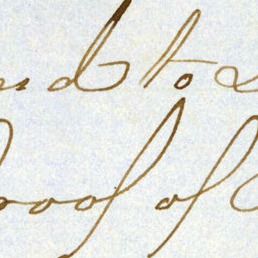 nd to
proof of